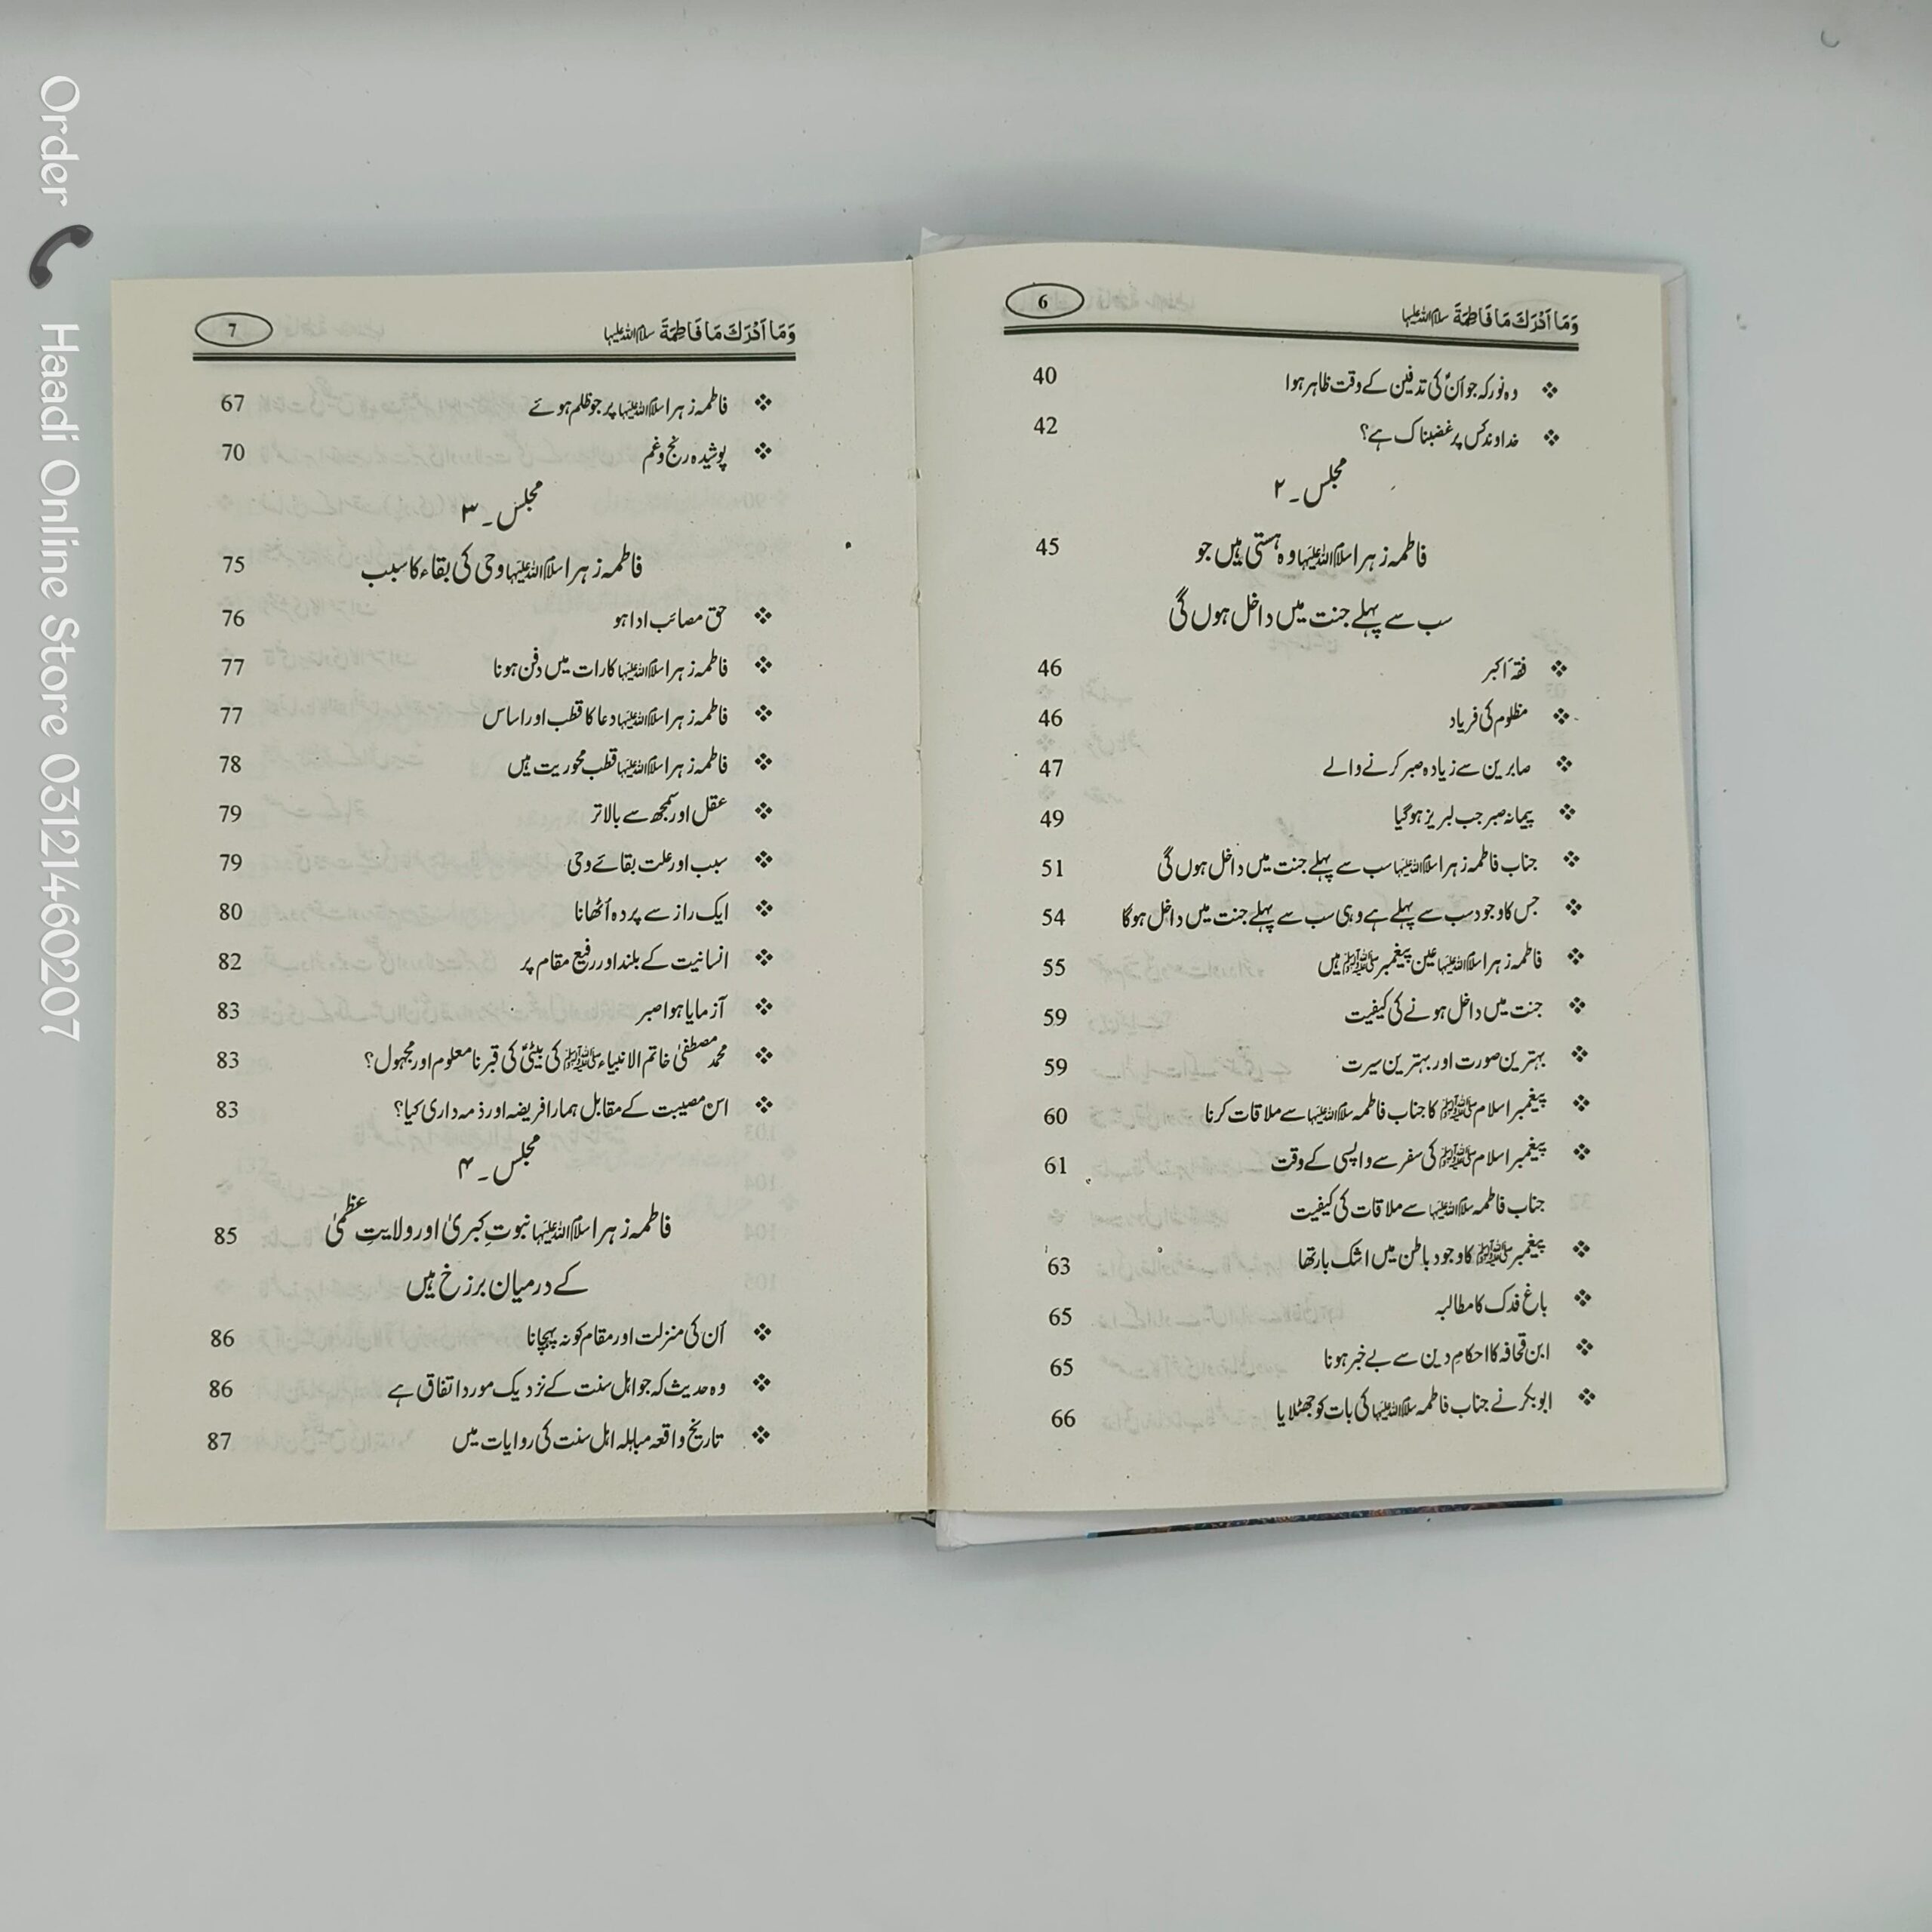 وَمَا اَدْرَكَ مَا فَاطِمَةَ سلام اللہ علیہا 6
❖ وہ نور کہ جو اُنؑ کی تدفین کے وقت ظاہر ہوا 40
❖ خداوند کس پر غضبناک ہے؟ 42
مجلس ـ ۲
فاطمہ زہرا سلام اللہ علیہا وہ ہستی ہیں جو 45
سب سے پہلے جنت میں داخل ہوں گی
❖ فقہ اکبر 46
❖ مظلوم کی فریاد 46
❖ صابرین سے زیادہ صبر کرنے والے 47
❖ پیمانہ صبر جب لبریز ہو گیا 49
❖ جناب فاطمہ زہرا سلام اللہ علیہا سب سے پہلے جنت میں داخل ہوں گی 51
❖ جس کا وجود سب سے پہلے ہے وہی سب سے پہلے جنت میں داخل ہوگا 54
❖ فاطمہ زہرا سلام اللہ علیہا عین پیغمبر ﷺ ہیں 55
❖ جنت میں داخل ہونے کی کیفیت 59
❖ بہترین صورت اور بہترین سیرت 59
❖ پیغمبر اسلام ﷺ کا جناب فاطمہ سلام اللہ علیہا سے ملاقات کرنا 60
❖ پیغمبر اسلام ﷺ کی سفر سے واپسی کے وقت 61
جناب فاطمہ سلام اللہ علیہا سے ملاقات کی کیفیت
❖ پیغمبر ﷺ کا وجود باطن میں اشک بار تھا 63
❖ باغ فدک کا مطالبہ 65
❖ ابن قحافہ کا احکامِ دین سے بے خبر ہونا 65
❖ ابوبکر نے جناب فاطمہ سلام اللہ علیہا کی بات کو جھٹلایا 66
وَمَا اَدْرَكَ مَا فَاطِمَةَ سلام اللہ علیہا 7
❖ فاطمہ زہرا سلام اللہ علیہا پر جو ظلم ہوئے 67
❖ پوشیدہ رنج و غم 70
مجلس ـ ۳
فاطمہ زہرا سلام اللہ علیہا وحی کی بقاء کا سبب 75
❖ حق مصائب ادا ہو 76
❖ فاطمہ زہرا سلام اللہ علیہا کا رات میں دفن ہونا 77
❖ فاطمہ زہرا سلام اللہ علیہا دعا کا قطب اور اساس 77
❖ فاطمہ زہرا سلام اللہ علیہا قطب محوریت ہیں 78
❖ عقل اور سمجھ سے بالاتر 79
❖ سبب اور علت بقائے وحی 79
❖ ایک راز سے پردہ اُٹھانا 80
❖ انسانیت کے بلند اور رفیع مقام پر 82
❖ آزمایا ہوا صبر 83
❖ محمد مصطفیٰ خاتم الانبیاء ﷺ کی بیٹیؑ کی قبر نامعلوم اور مجہول؟ 83
❖ اس مصیبت کے مقابل ہمارا فریضہ اور ذمہ داری کیا؟ 83
مجلس ـ ۴
فاطمہ زہرا سلام اللہ علیہا نبوتِ کبریٰ اور ولایتِ عظمیٰ 85
کے درمیان برزخ ہیں
❖ اُن کی منزلت اور مقام کو نہ پہچانا 86
❖ وہ حدیث کہ جو اہل سنت کے نزدیک مورد اتفاق ہے 86
❖ تاریخ واقعہ مباہلہ اہل سنت کی روایات میں 87
Order 📞 Haadi Online Store 03121460207